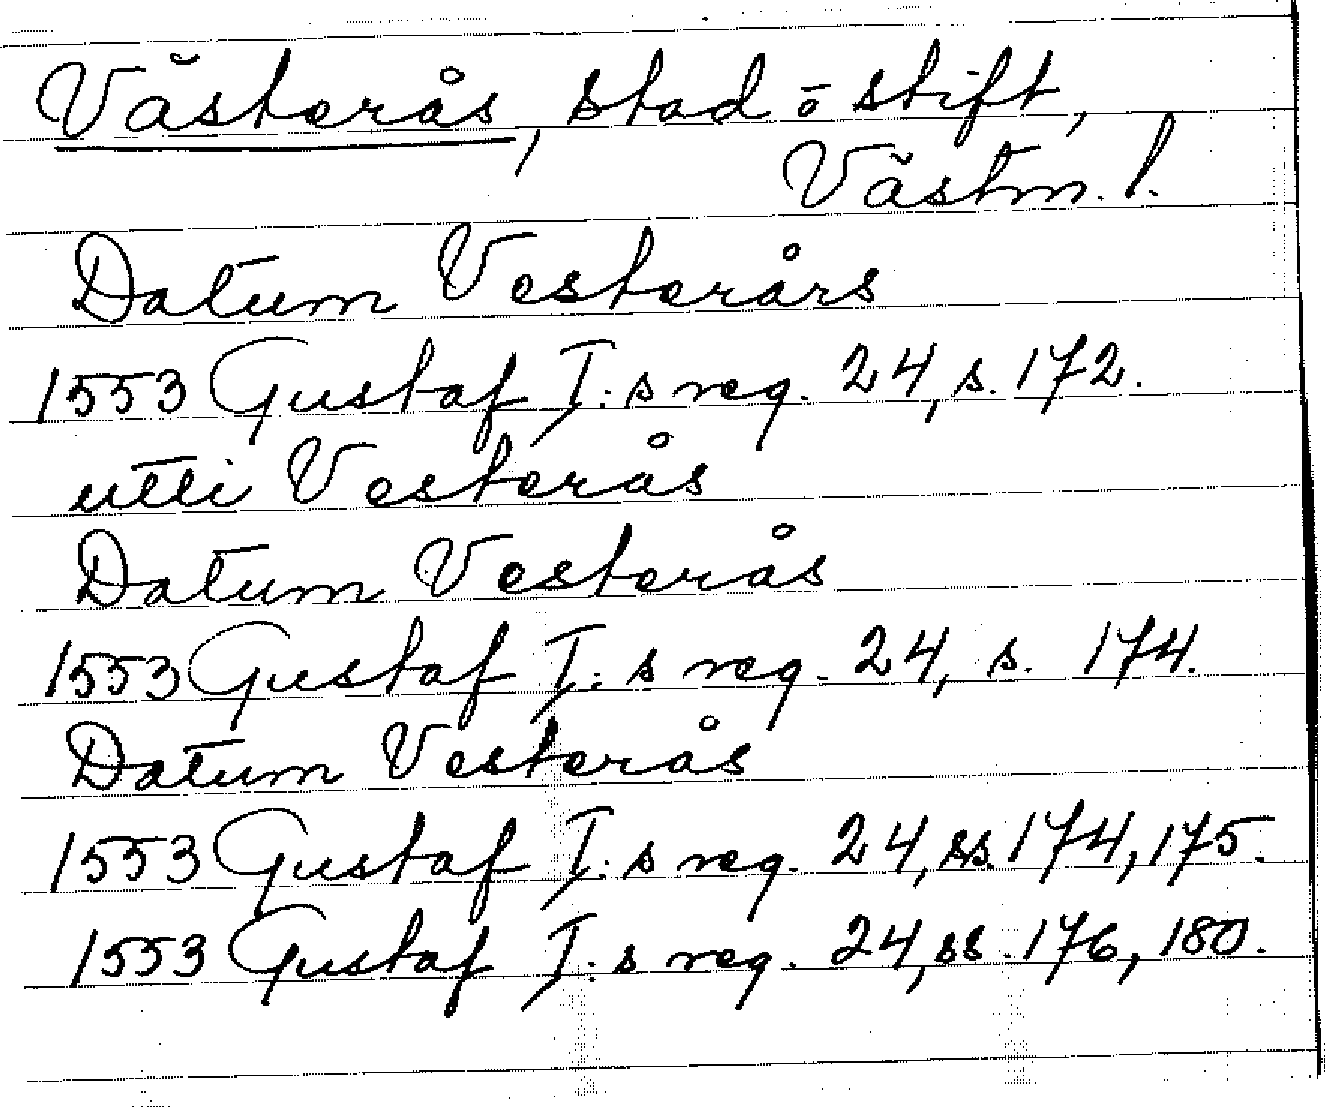 Västerås, stad o stift,
Västm. l.
Datum Vesterårs
1553 Gustaf I:s reg. 24, s. 172.
utti Vesterås
Datum Vesterås
1553 Gustaf I:s reg. 24, s. 174.
Datum Vesterås
1553 Gustaf I:s reg. 24, ss. 174, 175.
1553 Gustaf I:s reg. 24, ss. 176, 180.